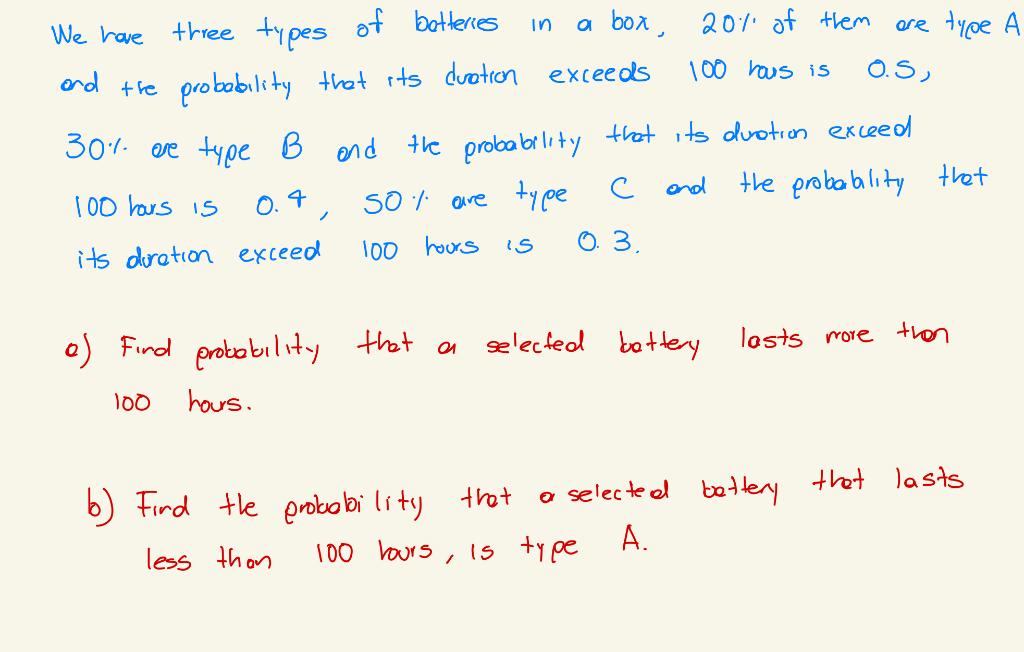 We have three types of batteries in a box, 20% of them are type A
and the probability that its duration exceeds 100 hours is 0.5,
30% are type B and the probability that its duration exceed
100 hours is 0.4, 50% are type C and the probability that
its duration exceed 100 hours is 0.3.
a) Find probability that a selected battery lasts more than
100 hours.
b) Find the probability that a selected battery that lasts
less than 100 hours, is type A.